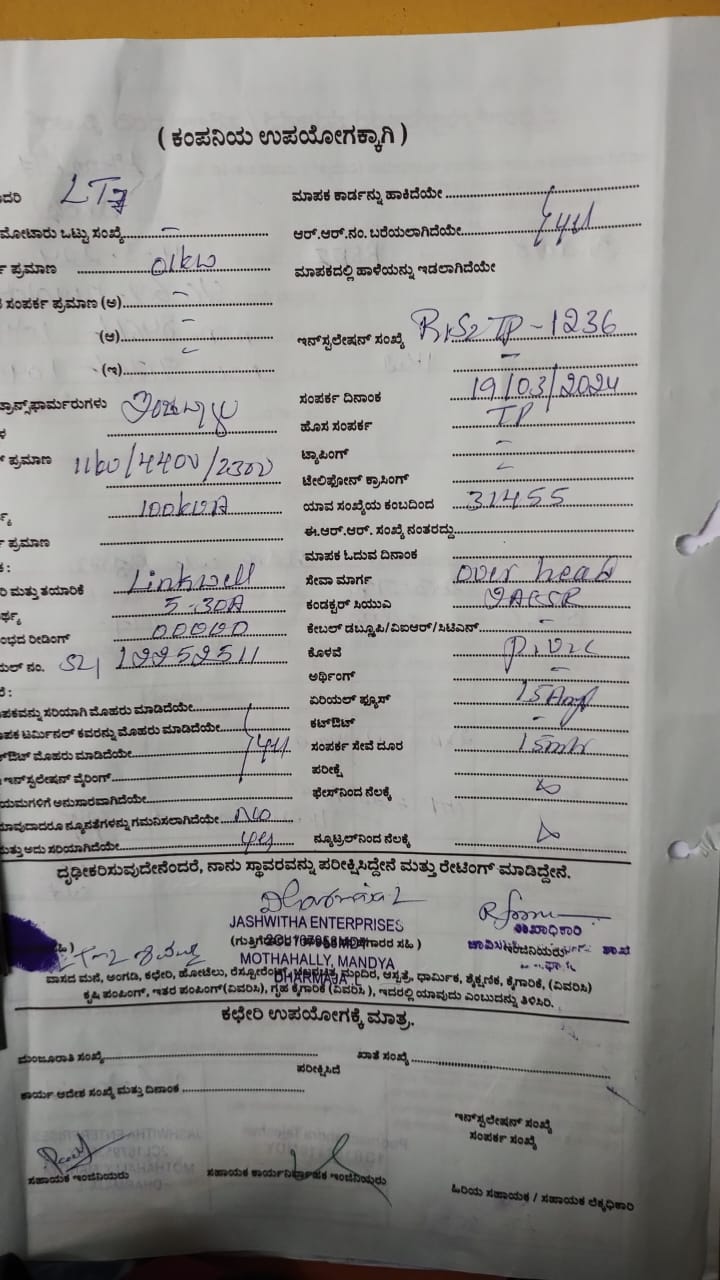 ( ಕಂಪನಿಯ ಉಪಯೋಗಕ್ಕಾಗಿ )
ದರಿ LT7
ಮಾಪಕ ಕಾರ್ಡನ್ನು ಹಾಕಿದೆಯೇ
ಮೋಟಾರು ಒಟ್ಟು ಸಂಖ್ಯೆ –
ಆರ್.ಆರ್.ನಂ. ಬರೆಯಲಾಗಿದೆಯೇ
ಪ್ರಮಾಣ 01kw
ಮಾಪಕದಲ್ಲಿ ಹಾಳೆಯನ್ನು ಇಡಲಾಗಿದೆಯೇ
ಸಂಪರ್ಕ ಪ್ರಮಾಣ (ಅ) –
(ಆ) –
ಇನ್‌ಸ್ಟಲೇಷನ್ ಸಂಖ್ಯೆ TP-1236
(ಇ)
ಸಂಪರ್ಕ ದಿನಾಂಕ 19/03/2024
ಟ್ರಾನ್ಸ್‌ಫಾರ್ಮರುಗಳು
ಹೊಸ ಸಂಪರ್ಕ TP
ಪ್ರಮಾಣ 11kv/440v/230v
ಟ್ಯಾಪಿಂಗ್ –
ಟೆಲಿಫೋನ್ ಕ್ರಾಸಿಂಗ್ –
100kVA
ಯಾವ ಸಂಖ್ಯೆಯ ಕಂಬದಿಂದ 31455
ಪ್ರಮಾಣ
ಈ.ಆರ್.ಆರ್. ಸಂಖ್ಯೆ ನಂತರದ್ದು
ಮಾಪಕ ಓದುವ ದಿನಾಂಕ
ರಿ ಮತ್ತು ತಯಾರಿಕೆ Linkwell
ಸೇವಾ ಮಾರ್ಗ over head
5-30A
ಕಂಡಕ್ಟರ್ ಸಿಯುವಿ
ಂಭದ ರೀಡಿಂಗ್ 00000
ಕೇಬಲ್ ಡಬ್ಲ್ಯೂಪಿ/ವಿಐಆರ್/ಸಿಟಿಎನ್ –
ಯಲ್ ನಂ. 12252511
ಕೊಳವೆ
ಅರ್ಥಿಂಗ್ –
ಪಕವನ್ನು ಸರಿಯಾಗಿ ಮೊಹರು ಮಾಡಿದೆಯೇ
ಏರಿಯಲ್ ಫ್ಯೂಸ್ 15Amp
ಪಕ ಟರ್ಮಿನಲ್ ಕವರನ್ನು ಮೊಹರು ಮಾಡಿದೆಯೇ
ಕಟ್‌ಔಟ್ –
ಔಟ್ ಮೊಹರು ಮಾಡಿದೆಯೇ
ಸಂಪರ್ಕ ಸೇವೆ ದೂರ 15mtr
ಇನ್‌ಸ್ಟಲೇಷನ್ ವೈರಿಂಗ್
ಪರೀಕ್ಷೆ
ಯಮಗಳಿಗೆ ಅನುಸಾರವಾಗಿದೆಯೇ
ಫೇಸ್‌ನಿಂದ ನೆಲಕ್ಕೆ
ಯಾವುದಾದರೂ ನ್ಯೂನತೆಗಳನ್ನು ಗಮನಿಸಲಾಗಿದೆಯೇ No
ಮತ್ತು ಅದು ಸರಿಯಾಗಿದೆಯೇ yes
ನ್ಯೂಟ್ರಲ್‌ನಿಂದ ನೆಲಕ್ಕೆ
ದೃಢೀಕರಿಸುವುದೇನೆಂದರೆ, ನಾನು ಸ್ಥಾವರವನ್ನು ಪರೀಕ್ಷಿಸಿದ್ದೇನೆ ಮತ್ತು ರೇಟಿಂಗ್ ಮಾಡಿದ್ದೇನೆ.
JASHWITHA ENTERPRISES
ಶಾಖಾಧಿಕಾರಿ
MOTHAHALLY, MANDYA
DHARMARAJ
ವಾಸದ ಮನೆ, ಅಂಗಡಿ, ಕಛೇರಿ, ಹೋಟೆಲು, ರೆಸ್ಟೋರೆಂಟ್, ಮಂದಿರ, ಆಸ್ಪತ್ರೆ, ಧಾರ್ಮಿಕ, ಶೈಕ್ಷಣಿಕ, ಕೈಗಾರಿಕೆ, (ವಿವರಿಸಿ)
ಕೃಷಿ ಪಂಪಿಂಗ್, ಇತರ ಪಂಪಿಂಗ್ (ವಿವರಿಸಿ), ಗೃಹ ಕೈಗಾರಿಕೆ (ವಿವರಿಸಿ), ಇದರಲ್ಲಿ ಯಾವುದು ಎಂಬುದನ್ನು ತಿಳಿಸಿರಿ.
ಕಛೇರಿ ಉಪಯೋಗಕ್ಕೆ ಮಾತ್ರ.
ಮಂಜೂರಾತಿ ಸಂಖ್ಯೆ
ಖಾತೆ ಸಂಖ್ಯೆ
ಪರೀಕ್ಷಿಸಿದೆ
ಕಾರ್ಯ ಆದೇಶ ಸಂಖ್ಯೆ ಮತ್ತು ದಿನಾಂಕ
ಇನ್‌ಸ್ಟಲೇಷನ್ ಸಂಖ್ಯೆ
ಸಂಪರ್ಕ ಸಂಖ್ಯೆ
ಸಹಾಯಕ ಇಂಜಿನಿಯರು
ಸಹಾಯಕ ಕಾರ್ಯನಿರ್ವಾಹಕ ಇಂಜಿನಿಯರು
ಹಿರಿಯ ಸಹಾಯಕ / ಸಹಾಯಕ ಲೆಕ್ಕಾಧಿಕಾರಿ